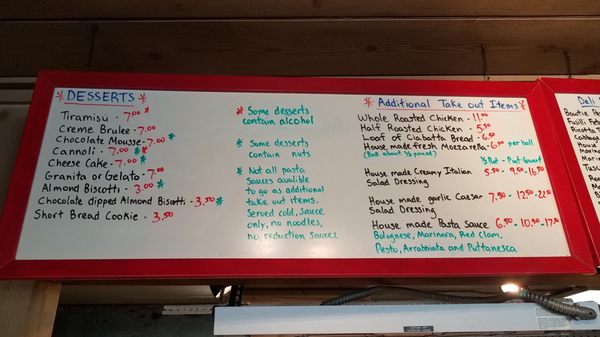 *DESSERTS*
Tiramisú - 7.00*
Creme Brulee - 7.00
Chocolate Mousse - 7.00*
Cannoli - 7.00**
Cheese Cake - 7.00*
Granita or Gelato - 7.00
Almond Biscotti - 3.00*
Chocolate dipped Almond Bisotti - 3.50*
Short Bread Cookie - 3.50
* Some desserts
contain alcohol
* Some desserts
contain nuts
* Not all pasta
sauces avalible
to go as additional
take out items.
Served cold, sauce
only, no noodles,
no reduction sauces
*Additional Take out Items*
Whole Roasted Chicken - 11.00
Half Roasted Chicken - 5.50
Loaf of Ciabatta Bread - 6.50
House made fresh Mozzarella - 6.00 per ball
(Ball about ½ pound)
½ Pint - Pint - Quart
House made Creamy Italian 5.50 - 9.50 - 16.50
Salad Dressing
House made garlic Caesar 7.50 - 12.50 - 22.50
Salad Dressing
House made Pasta Sauce 6.50 - 10.50 - 17.50
Bolognese, Marinara, Red Clam,
Pesto, Arrabbiata and Puttanesca
Deli
Bowtie
Fusilli
House